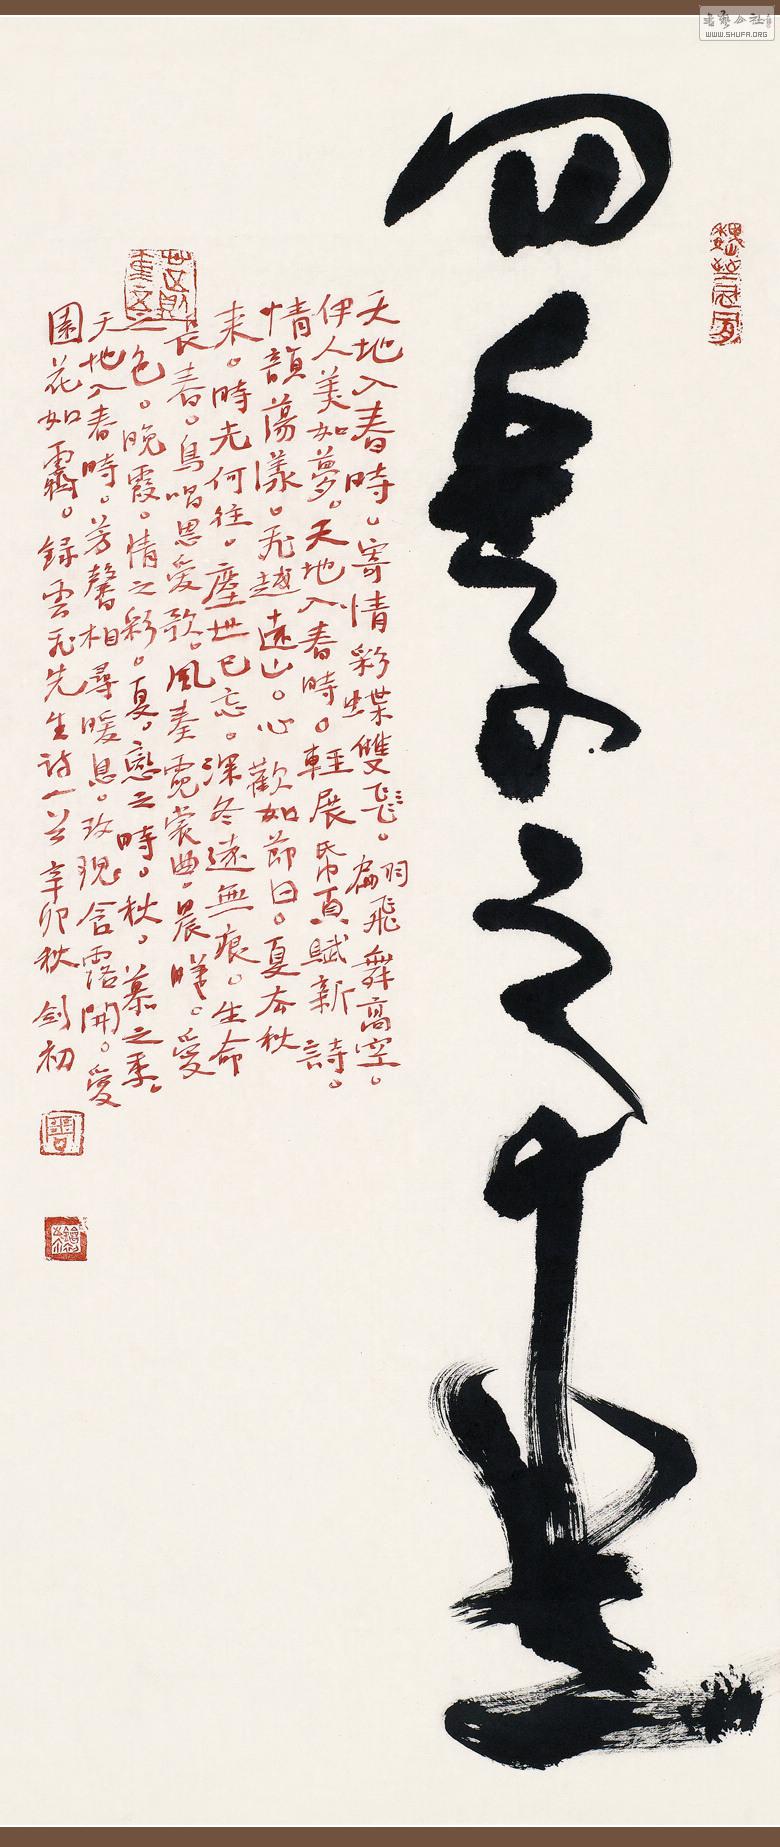 四季之
天地入春時。寄情彩蝶雙。翩飛舞高空。
伊人美如夢。天地入春時。輕展帋頁賦新詩。
情韻蕩漾。飛越遠山。心歡如節日。夏去秋
来。時光何往。塵世已忘。深冬遠無痕。生命
長春。鳥唱思愛歌。風奏霓裳曲。晨曦。愛
之色。晚霞。情之彩。夏。戀之時。秋。慕之季。
天地入春時。芳馨相尋暖息。玫瑰含露開。愛
園花如霽。録雲飛先生詩一首 辛卯秋 劍初
WWW.SHUFA.ORG